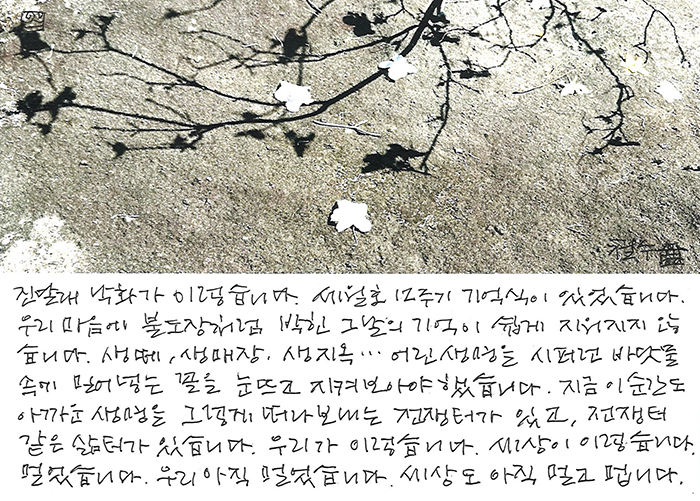 진달래 낙화가 이렇습니다. 세월호 12주기 기억식이 있었습니다.
우리 마음에 불도장처럼 박힌 그날의 기억이 쉽게 지워지지 않
습니다. 생떼, 생매장, 생지옥… 어린 생명을 시퍼런 바닷물
속에 밀어넣는 꼴을 눈뜨고 지켜보아야 했습니다. 지금 이 순간도
아까운 생명을 그렇게 떠나보내는 전쟁터가 있고, 전쟁터
같은 삶터가 있습니다. 우리가 이렇습니다. 세상이 이렇습니다.
멀었습니다. 우리 아직 멀었습니다. 세상도 아직 멀고 멉니다.